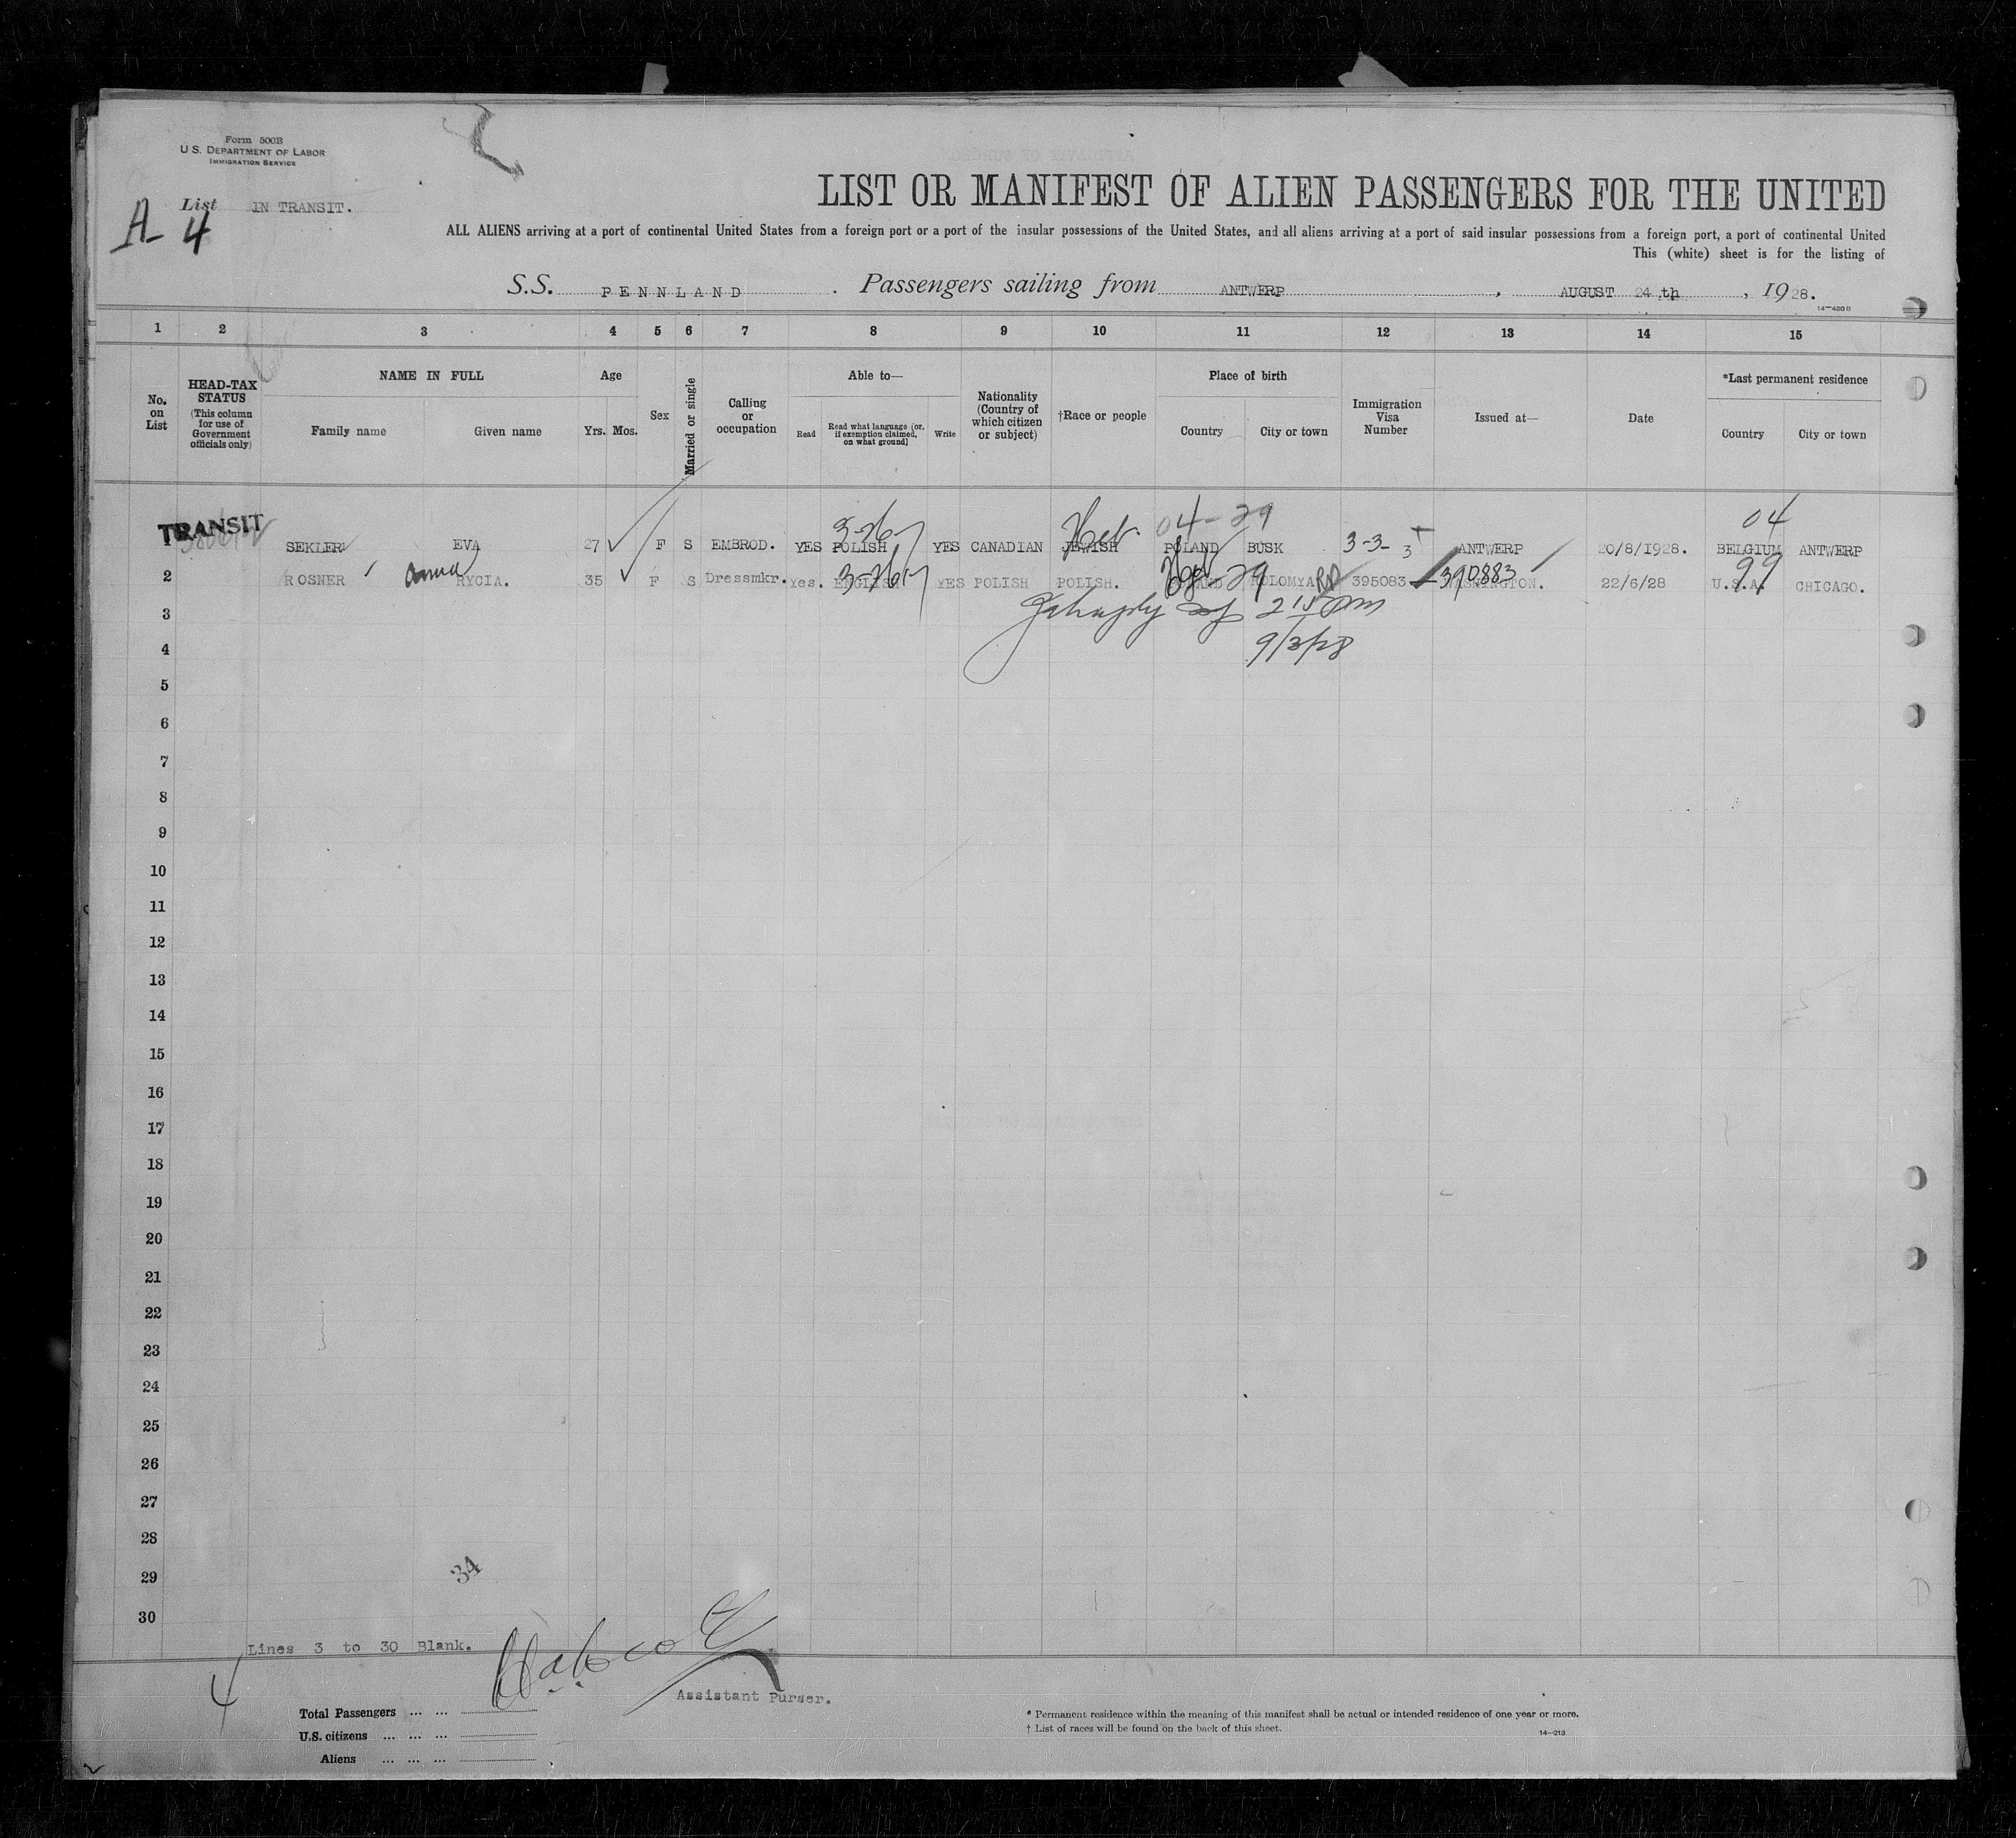 Form 500B
U. S. DEPARTMENT OF LABOR
IMMIGRATION SERVICE
List IN TRANSIT.
A-4
LIST OR MANIFEST OF ALIEN PASSENGERS FOR THE UNITED
ALL ALIENS arriving at a port of continental United States from a foreign port or a port of the insular possessions of the United States, and all aliens arriving at a port of said insular possessions from a foreign port, a port of continental United
This (white) sheet is for the listing of
S.S. PENNLAND . Passengers sailing from ANTWERP , AUGUST 24 th , 1928.
14—480 B
1 2 3 4 5 6 7 8 9 10 11 12 13 14 15
No. on List
HEAD-TAX STATUS (This column for use of Government officials only)
NAME IN FULL
Family name Given name
Age
Yrs. Mos.
Sex
Married or single
Calling or occupation
Able to—
Read Read what language [or, if exemption claimed, on what ground] Write
Nationality (Country of which citizen or subject)
†Race or people
Place of birth
Country City or town
Immigration Visa Number
Issued at—
Date
*Last permanent residence
Country City or town
TRANSIT
3-26- Heb. 04-29 04
1 SEKLER EVA 27 F S EMBROD. YES POLISH YES CANADIAN JEWISH POLAND BUSK 3-3- 3 ANTWERP 20/8/1928. BELGIUM ANTWERP
2 ROSNER Anna RYCIA. 35 F S Dressmkr. Yes. ENGLISH YES POLISH POLISH. KOLOMYA 395083 390883 WASHINGTON. 22/6/28 U.S.A. CHICAGO.
3-26- Heb 29 99
3
4 9/3/28
5
6
7
8
9
10
11
12
13
14
15
16
17
18
19
20
21
22
23
24
25
26
27
28
29
34
30
Lines 3 to 30 Blank.
4
Assistant Purser.
Total Passengers ... ...
U.S. citizens ... ... ...
Aliens ... ... ...
* Permanent residence within the meaning of this manifest shall be actual or intended residence of one year or more.
† List of races will be found on the back of this sheet.
14—213